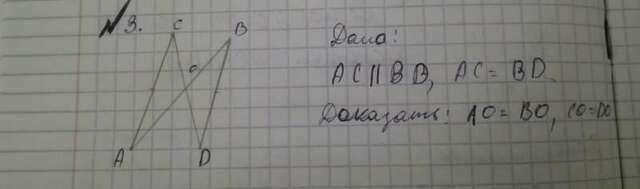 №3.
C B
O
A D
Дано:
AC || BD, AC = BD
Доказать: AO = BO, CO = DO